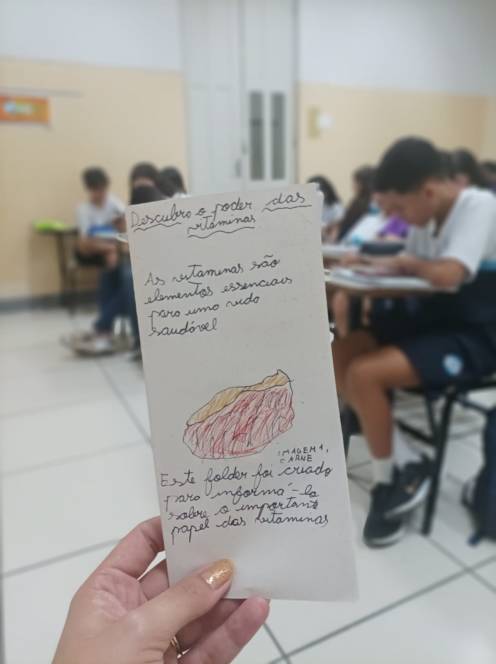 Descubra o poder das
vitaminas
As vitaminas são
elementos essenciais
para uma vida
saudável
IMAGEM 1,
CARNE
Este folder foi criado
para informá-la
sobre o importante
papel das vitaminas